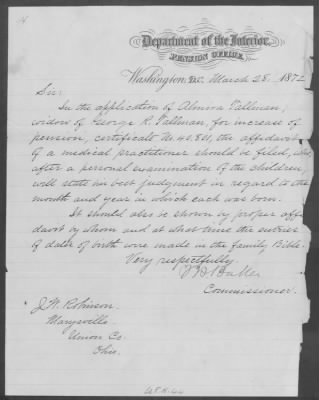 Department of the Interior,
PENSION OFFICE,
Washington, D.C. March 28, 1872
Sir:
In the application of Almira Tallman,
widow of George R. Tallman, for increase of
pension, certificate No. 40.821, the affidavit
of a medical practitioner should be filed, who,
after a personal examination of the children,
will state his best judgment in regard to the
month and year in which each was born.
It should also be shown by proper affi-
davit by whom and at what time the entries
of date of birth were made in the family Bible.
Very respectfully
Commissioner.
J. W. Robinson.
Marysville
Union Co.
Ohio.